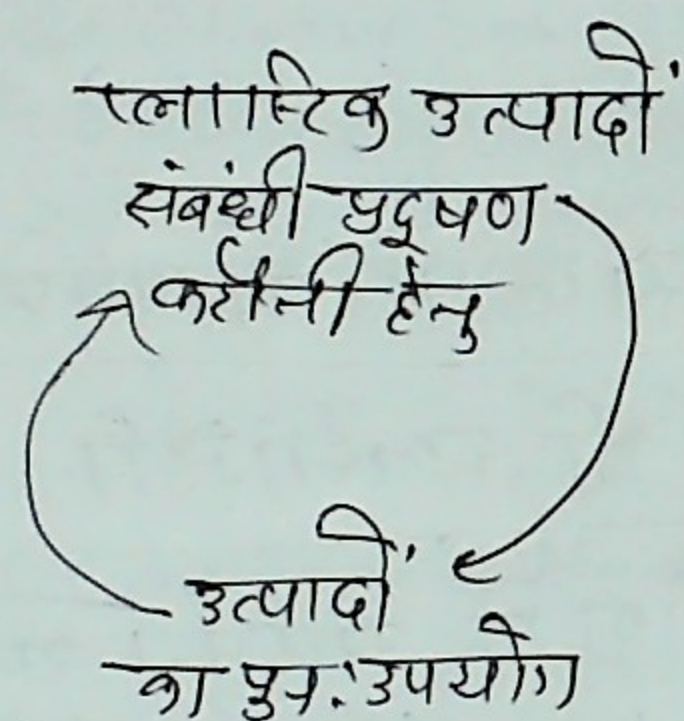 प्लास्टिक उत्पादों
संबंधी प्रदूषण
कटौती हेतु
उत्पादों
का पुन: उपयोग